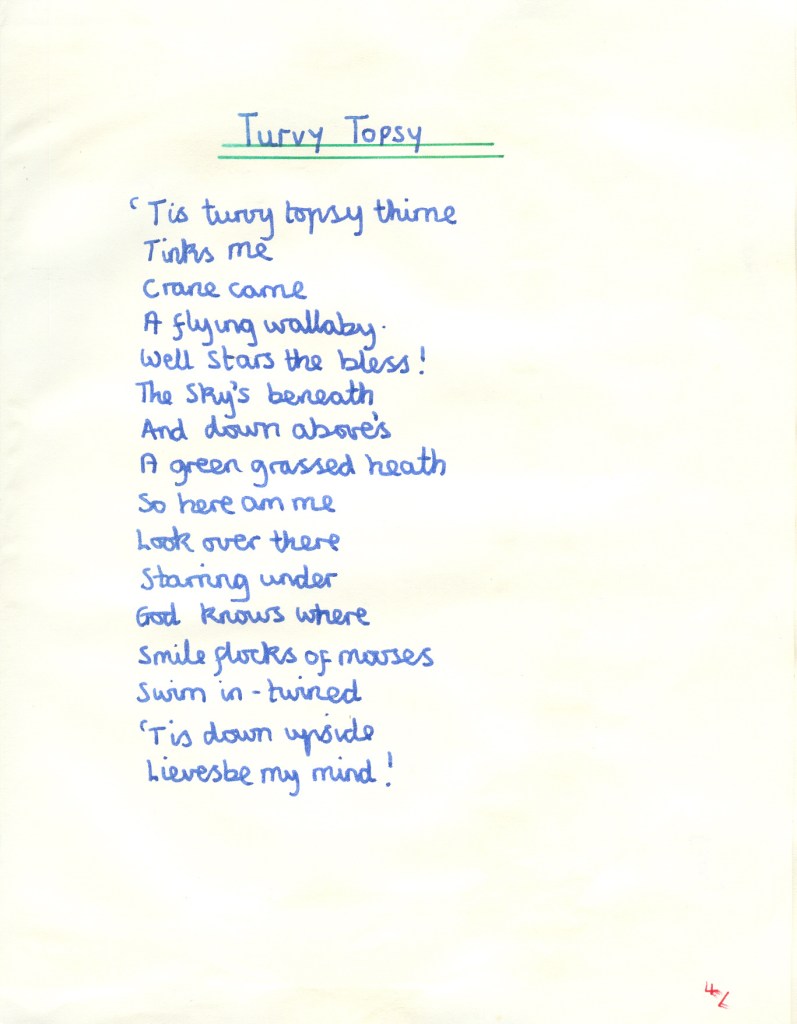 Turvy Topsy
'Tis turvy topsy thime
Tinks me
Crane came
A flying wallaby.
Well Stars the bless!
The Sky's beneath
And down above's
A green grassed heath
So here am me
Look over there
Starring under
God knows where
Smile flocks of mouses
Swim in-twined
'Tis down upside
Lievesbe my mind!